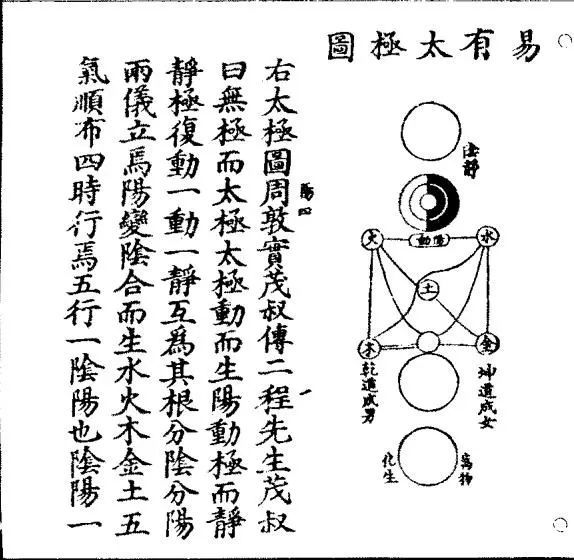 易有太極圖
陰靜
陽動
水
火
土
金
木
坤道成女
乾道成男
萬物
化生
右太極圖周敦實茂叔傳二程先生茂叔
曰無極而太極太極動而生陽動極而靜
靜極復動一動一靜互爲其根分陰分陽
兩儀立焉陽變陰合而生水火木金土五
氣順布四時行焉五行一陰陽也陰陽一